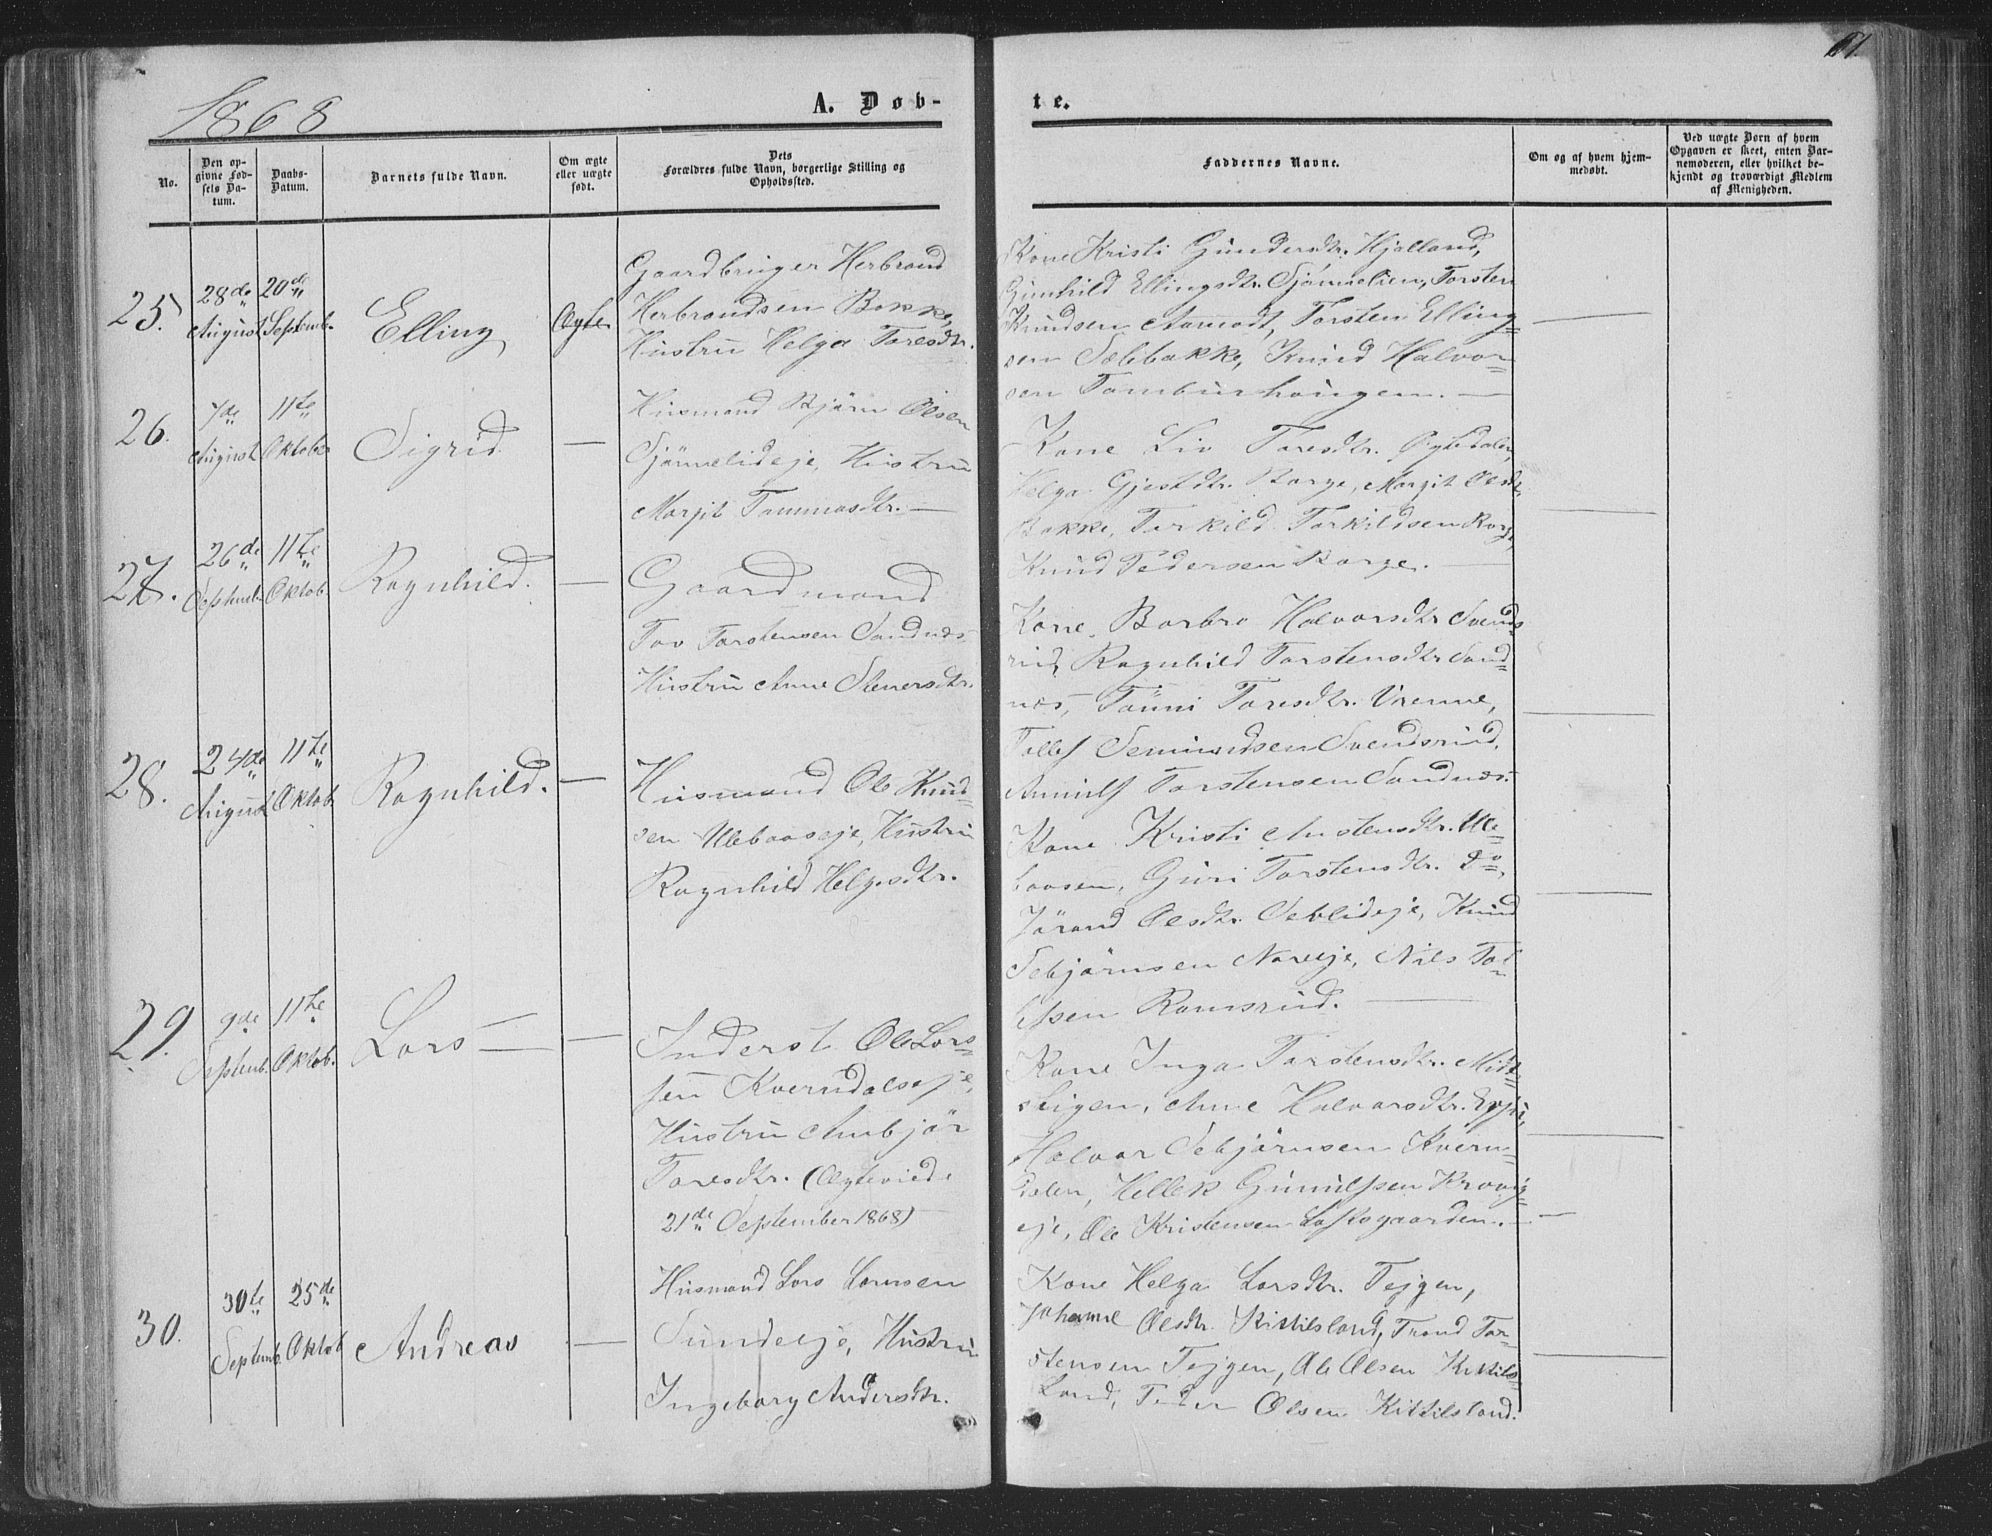 1868
A. Døb-
te.
61.
No.
Den opgivne Fødsels Datum.
Daabs-Datum.
Barnets fulde Navn.
Om ægte eller uægte født.
Dets Forældres fulde Navn, borgerlige Stilling og Opholdssted.
Faddernes Navne.
Om og af hvem hjemmedøbt.
Ved uægte Børn af hvem Opgaven er skeet, enten Barnemoderen, eller hvilket bekjendt og troværdigt Medlem af Menigheden.
25.
28de August
20de Septemb.
Elling
Ægte
Gaardbruger Herbrand
Herbrandsen Bakke,
Hustru Helga Toresdtr.
Kone Kristi Gundersdtr. Hjalland,
Gunhild Ellingsdtr. Sjønnelien, Torsten
Knudsen Aamodt, Torsten Elling=
sen Sælebakke, Knud Halvor=
sen Tamburhaugen. —
26.
7de August
11te Oktober
Sigrid
—
Husmand Bjørn Olsen
Sjønnelideje, Hustru
Margit Tommasdtr. —
Kone Liv Toresdtr.
Helga Gjestdtr. Borge, Margit Olsdtr.
Bakke, Torkild Torkildsen Borge,
Knud Pedersen Borge. —
27.
26de Septemb.
11te Oktob.
Ragnhild.
—
Gaardmand
Tov Torstensen Sandnæs
Hustru Anne Stenersdtr.
Kone Barbro Halvorsdtr Svends=
rud, Ragnhild Torstensdtr Sand=
næs, Tønni Toresdtr. Vrenne,
Tollef Semundsen Svendsrud,
Torstensen Sandnæs.
28.
24de August
11te Oktob.
Ragnhild.
—
Husmand Ole Knud=
sen Ulebaaseje, Hustru
Ragnhild Helgesdtr.
Kone Kristi Austensdtr. Ule=
baasen, Guri Torstensdtr. do,
Jørand Olsdtr. Seblideje, Knud
Sebjørnsen Noreeje, Nils Tol=
lefsen Ramsrud. —
29.
9de Septemb.
11te Oktob.
Lars —
—
Inderst Ole Lars=
sen Kverndalseje,
Hustru Anbjør
Toresdtr. (Ægteviede
21de September 1868)
Kone Inga Torstensdtr. Midt=
stigen, Anne Halvorsdtr.
Halvor Sebjørnsen Kvern=
dalen, Hellek Gunulfsen Kravig=
eje, Ole Kristensen Loftsgaarden. —
30.
30te Septemb.
25de Oktob
Andreas
—
Husmand Lars Larsen
Sundeeje, Hustru
Ingeborg Andersdtr.
Kone Helga Larsdtr. Tejgen,
Johanne Olsdtr. Kittilsland, Trond Tor=
stensen Tejgen, Ole Olsen Kittils=
land, Peder Olsen Kittilsland.